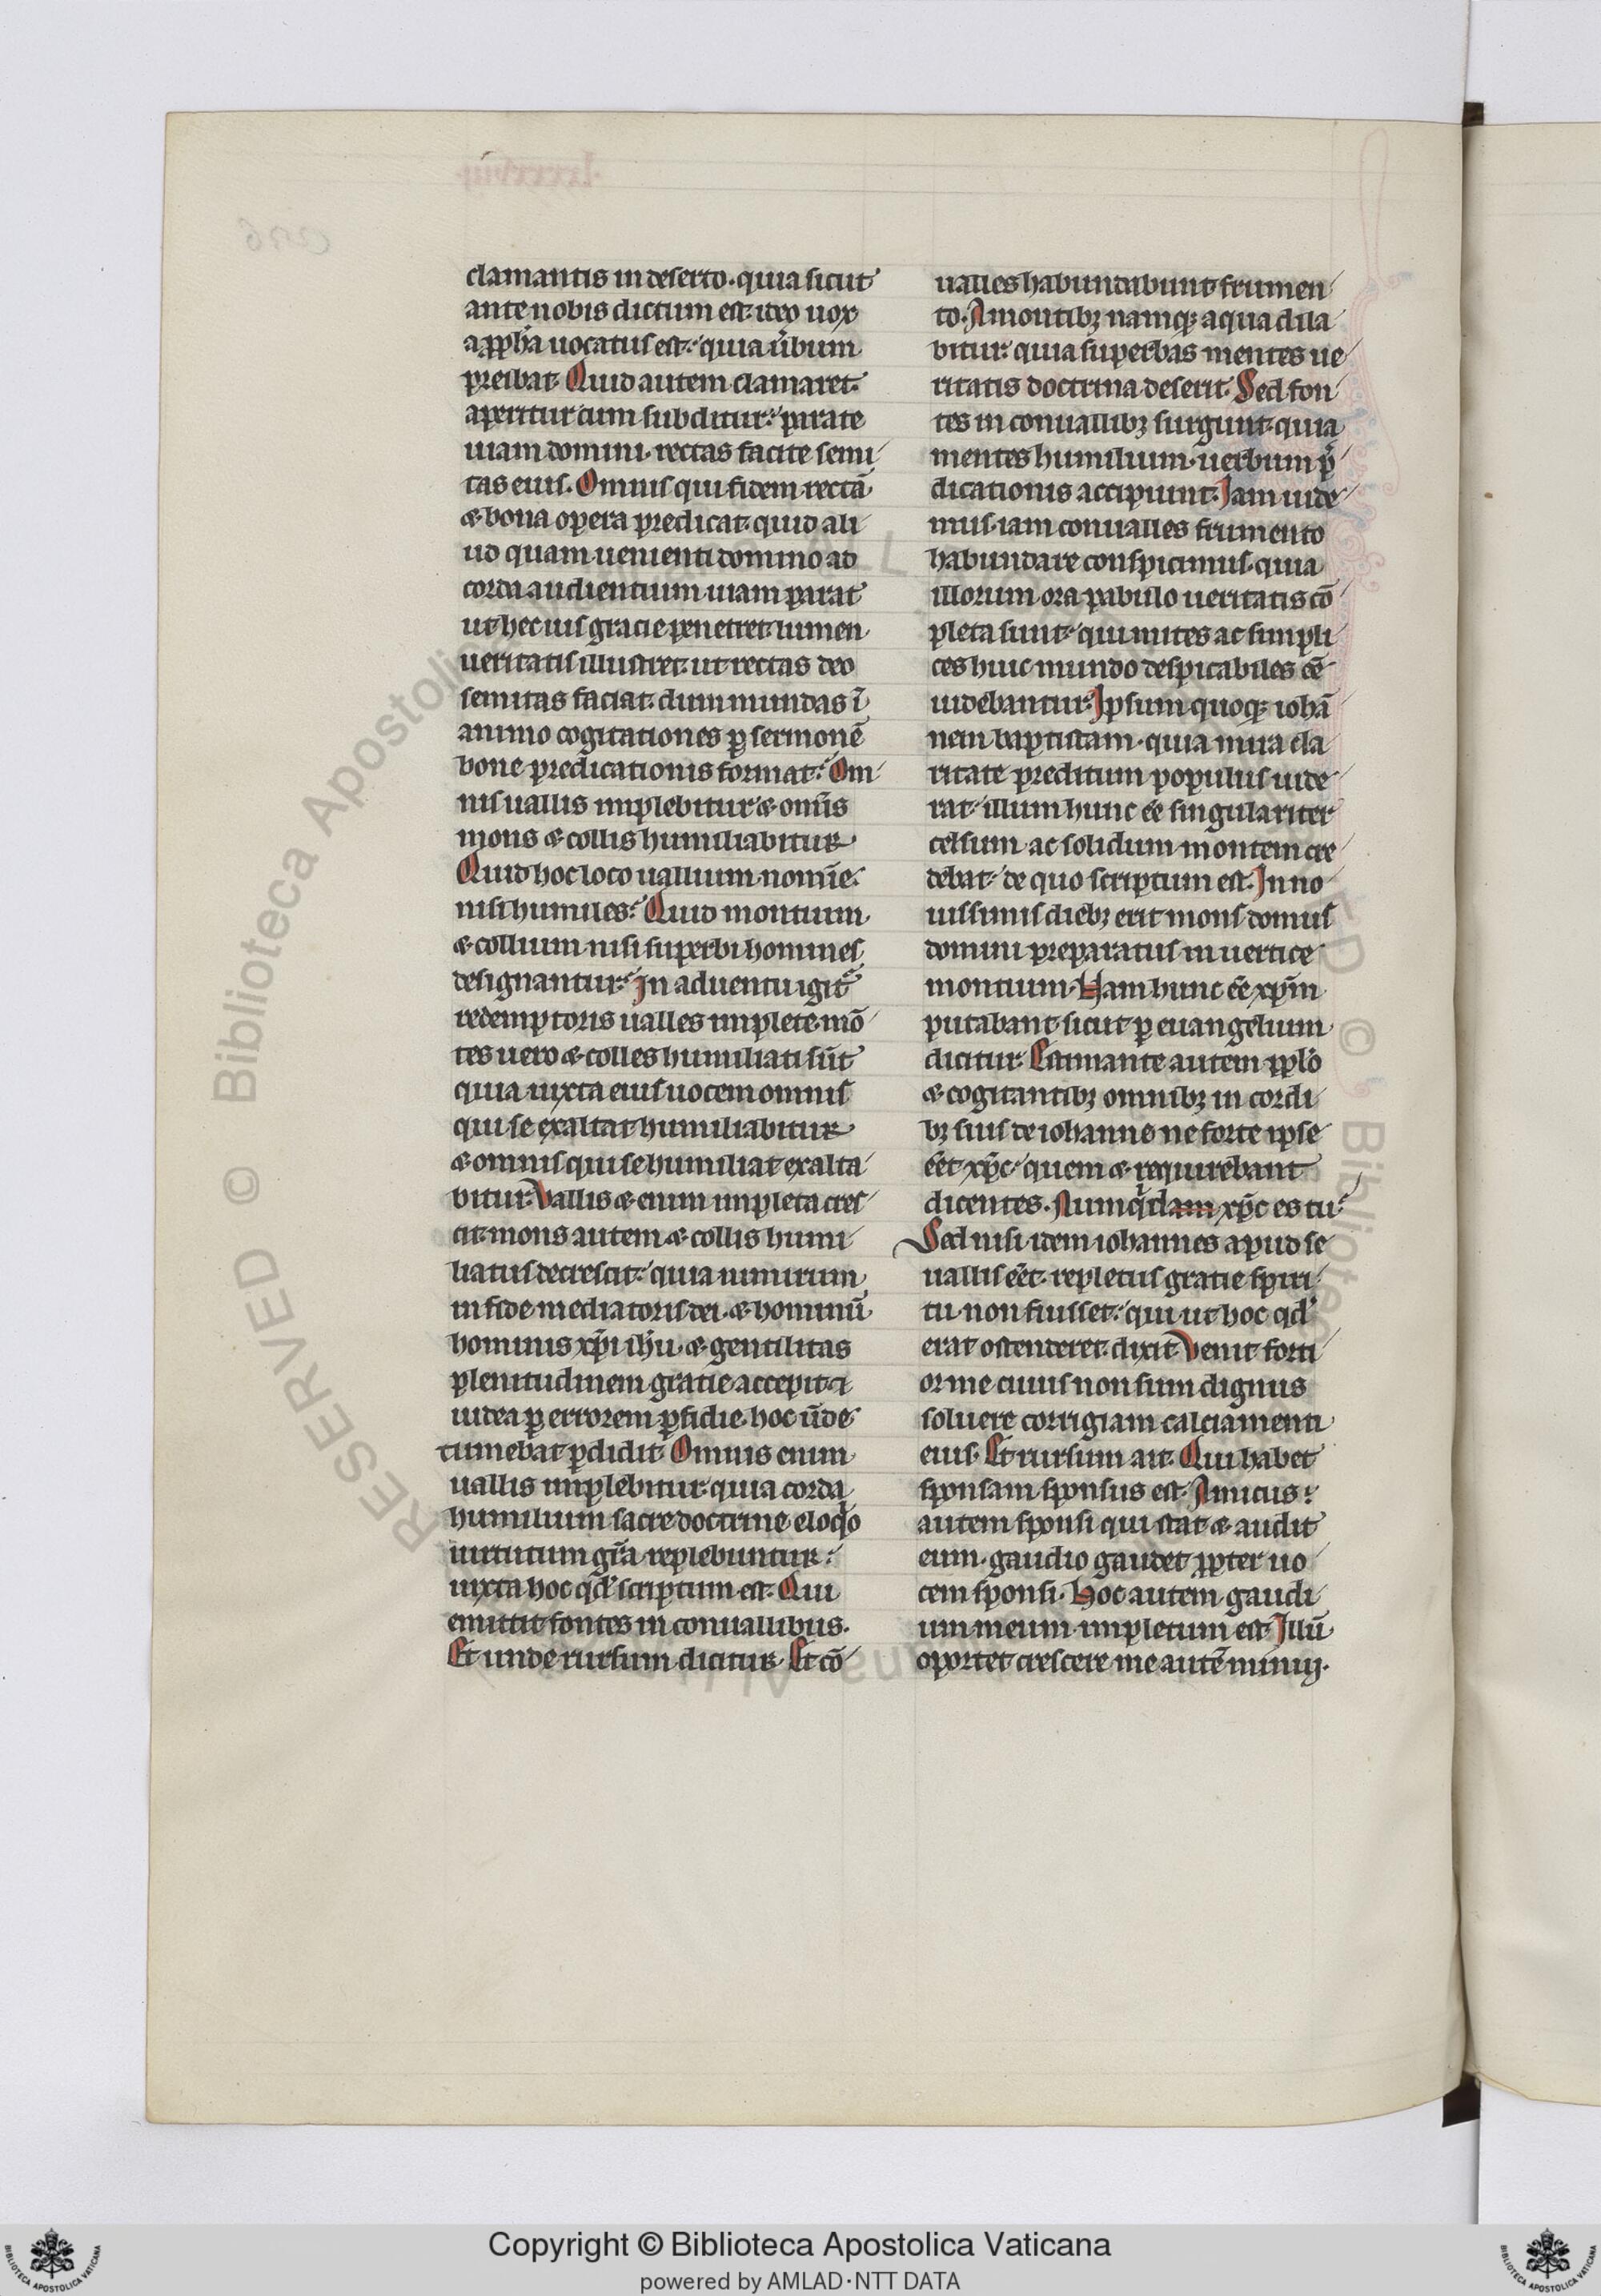 clamantis in deserto. quia sicut
ante nobis dictum est. ideo uox
a ꝓph̃a uocatus est. quia ũbum
preibat. Quid autem clamaret.
aperitur cum subditur. parate
uiam domini. rectas facite semi
tas eius. Omnis qui fidem rectã
& bona opera predicat. quid ali
ud quam uenienti domino ad
corda audientium uiam parat
ut hec uis gracie penetret. lumen
ueritatis illustret. ut rectas deo
semitas faciat. dum mundas ĩ
animo cogitationes ꝑ sermonẽ
bone predicationis format. Om
nis uallis implebitur & om̃s
mons & collis humiliabitur
Quid hoc loco uallium nomĩe.
nisi humiles. Quid montium
& collium nisi superbi homines
designantur. In aduentu igit᷑
redemptoris ualles implete. mõ
tes uero & colles humiliati sũt
quia iuxta eius uocem omnis
qui se exaltat humiliabitur
& omnis qui se humiliat exalta
bitur. Vallis & enim impleta cres
cit. mons autem & collis humi
liatus decrescit. quia nimirum
in fide mediatoris dei. & hominũ
hominis xp̃i ih̃u. & gentilitas
plenitudinem gratie accepit. ⁊
iudea ꝑ errorem ꝑfidie. hoc ũde
tumebat ꝑdidit. Omnis enim
uallis implebitur. quia corda
humilium sacre doctrine eloqͥo
uirtutum gr̃a replebuntur.
iuxta hoc qđ scriptum est. Qui
emittit fontes in conuallibus.
Et unde rursum dicitur. Et cõ
ualles habundabunt frumen
to. A montibꝫ namqꝫ aqua dila
bitur. quia superbas mentes ue
ritatis doctrina deserit. Sed fon
tes in conuallibꝫ surgunt. quia
mentes humilium. uerbum p̃
dicationis accipiunt. Iam uide
mus. iam conualles frumento
habundare conspicimus. quia
illorum ora pabulo ueritatis cõ
pleta sunt. qui mites ac simpli
ces huic mundo despicabiles eẽ
uidebantur. Ipsum quoqꝫ iohã
nem baptistam. quia mira cla
ritate preditum populus uide
rat. illum hunc eẽ singulariter
celsum ac solidum montem cre
debat. de quo scriptum est. In no
uissimis diebꝫ erit mons domus
domini preparatus in uertice
montium. Nam hunc eẽ xp̃m
putabant. sicut ꝑ euangelium
dicitur. Estimante autem ppl̃o
& cogitantibꝫ omnibꝫ in cordi
bꝫ suis de iohanne ne forte ipse
eẽt xp̃c. quem & requirebant
dicentes. Numqͥdam xp̃c es tu.
Sed nisi idem iohannes apud se
uallis eẽt. repletus gratie spiri
tu non fuisset. qui ut hoc qđ
erat ostenderet. dixit. Venit forti
or me cuius non sum dignus
soluere corrigiam calciamenti
eius. Et rursum ait. Qui habet
sponsam sponsus est. Amicus
autem sponsi qui stat & audit
eum. gaudio gaudet ꝓpter uo
cem sponsi. Hoc autem gaudi
um meum impletum est. Illũ
oportet crescere me autẽ minuj.
RESERVED © Biblioteca Apostolica
Copyright © Biblioteca Apostolica Vaticana
powered by AMLAD·NTT DATA